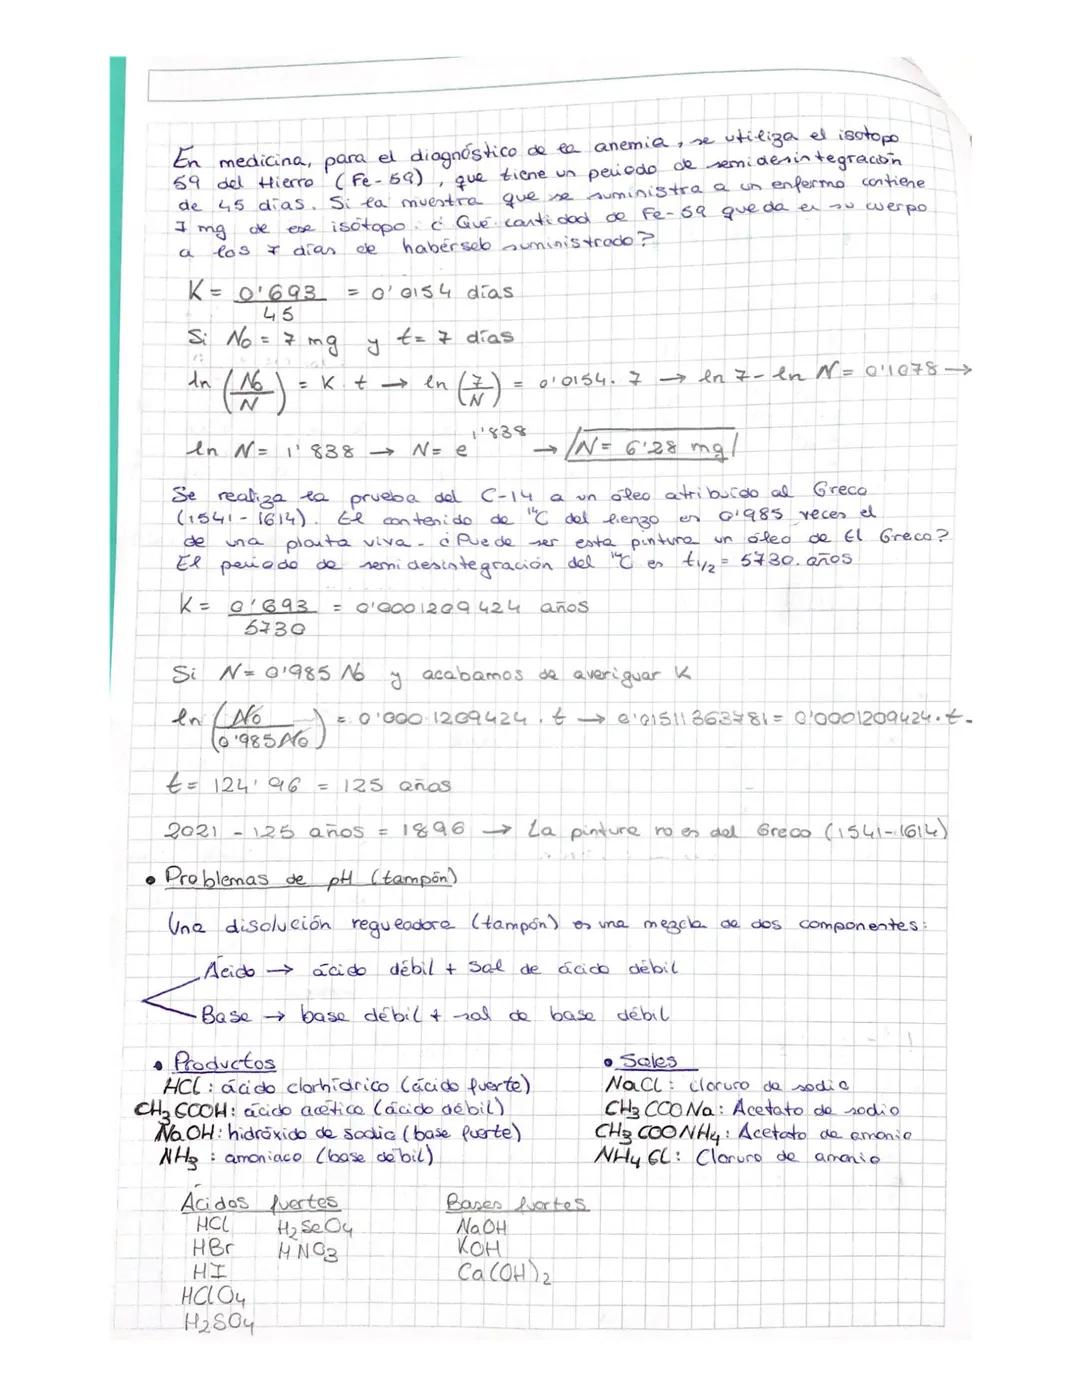 En medicina, para el diagnóstico de la anemia, se utiliza el isotopo
59 del Hierro (Fe-59), que tiene un periodo de semidesintegración
de 45 días. Si la muestra que se suministra a un enfermo contiene
7 mg de ese isótopo. ¿Qué cantidad de Fe-59 queda en su cuerpo
a los 7 días de habérselo suministrado?
K = 0'693/45 = 0'0154 días
Si No = 7 mg y t = 7 días
ln (No/N) = K · t → ln (7/N) = 0'0154 · 7 → ln 7 - ln N = 0'1078 →
ln N = 1'838 → N = e^1'838 → N = 6'28 mg
Se realiza la prueba del C-14 a un óleo atribuido al Greco
(1541-1614). El contenido de ¹⁴C del lienzo es 0'985 veces el
de una planta viva. ¿Puede ser esta pintura un óleo de El Greco?
El periodo de semidesintegración del ¹⁴C es t₁/₂ = 5730 años
K = 0'693/5730 = 0'0001209424 años
Si N = 0'985 No y acabamos de averiguar K
ln (No/0'985No) = 0'0001209424 · t → 0'01511363781 = 0'0001209424 · t -
t = 124'96 = 125 años
2021 - 125 años = 1896 → La pintura no es del Greco (1541-1614)
• Problemas de pH (tampón)
Una disolución regueadora (tampón) es una mezcla de dos componentes:
Ácido → ácido débil + sal de ácido débil
Base → base débil + sal de base débil
• Productos
HCl: ácido clorhídrico (ácido fuerte)
CH₃COOH: ácido acético (ácido débil)
NaOH: hidróxido de sodio (base fuerte)
NH₃: amoniaco (base débil)
• Sales
NaCl: cloruro de sodio
CH₃COONa: Acetato de sodio
CH₃COONH₄: Acetato de amonio
NH₄Cl: Cloruro de amonio
Ácidos fuertes
HCl H₂SeO₄
HBr HNO₃
HI
HClO₄
H₂SO₄
Bases fuertes
NaOH
KOH
Ca(OH)₂